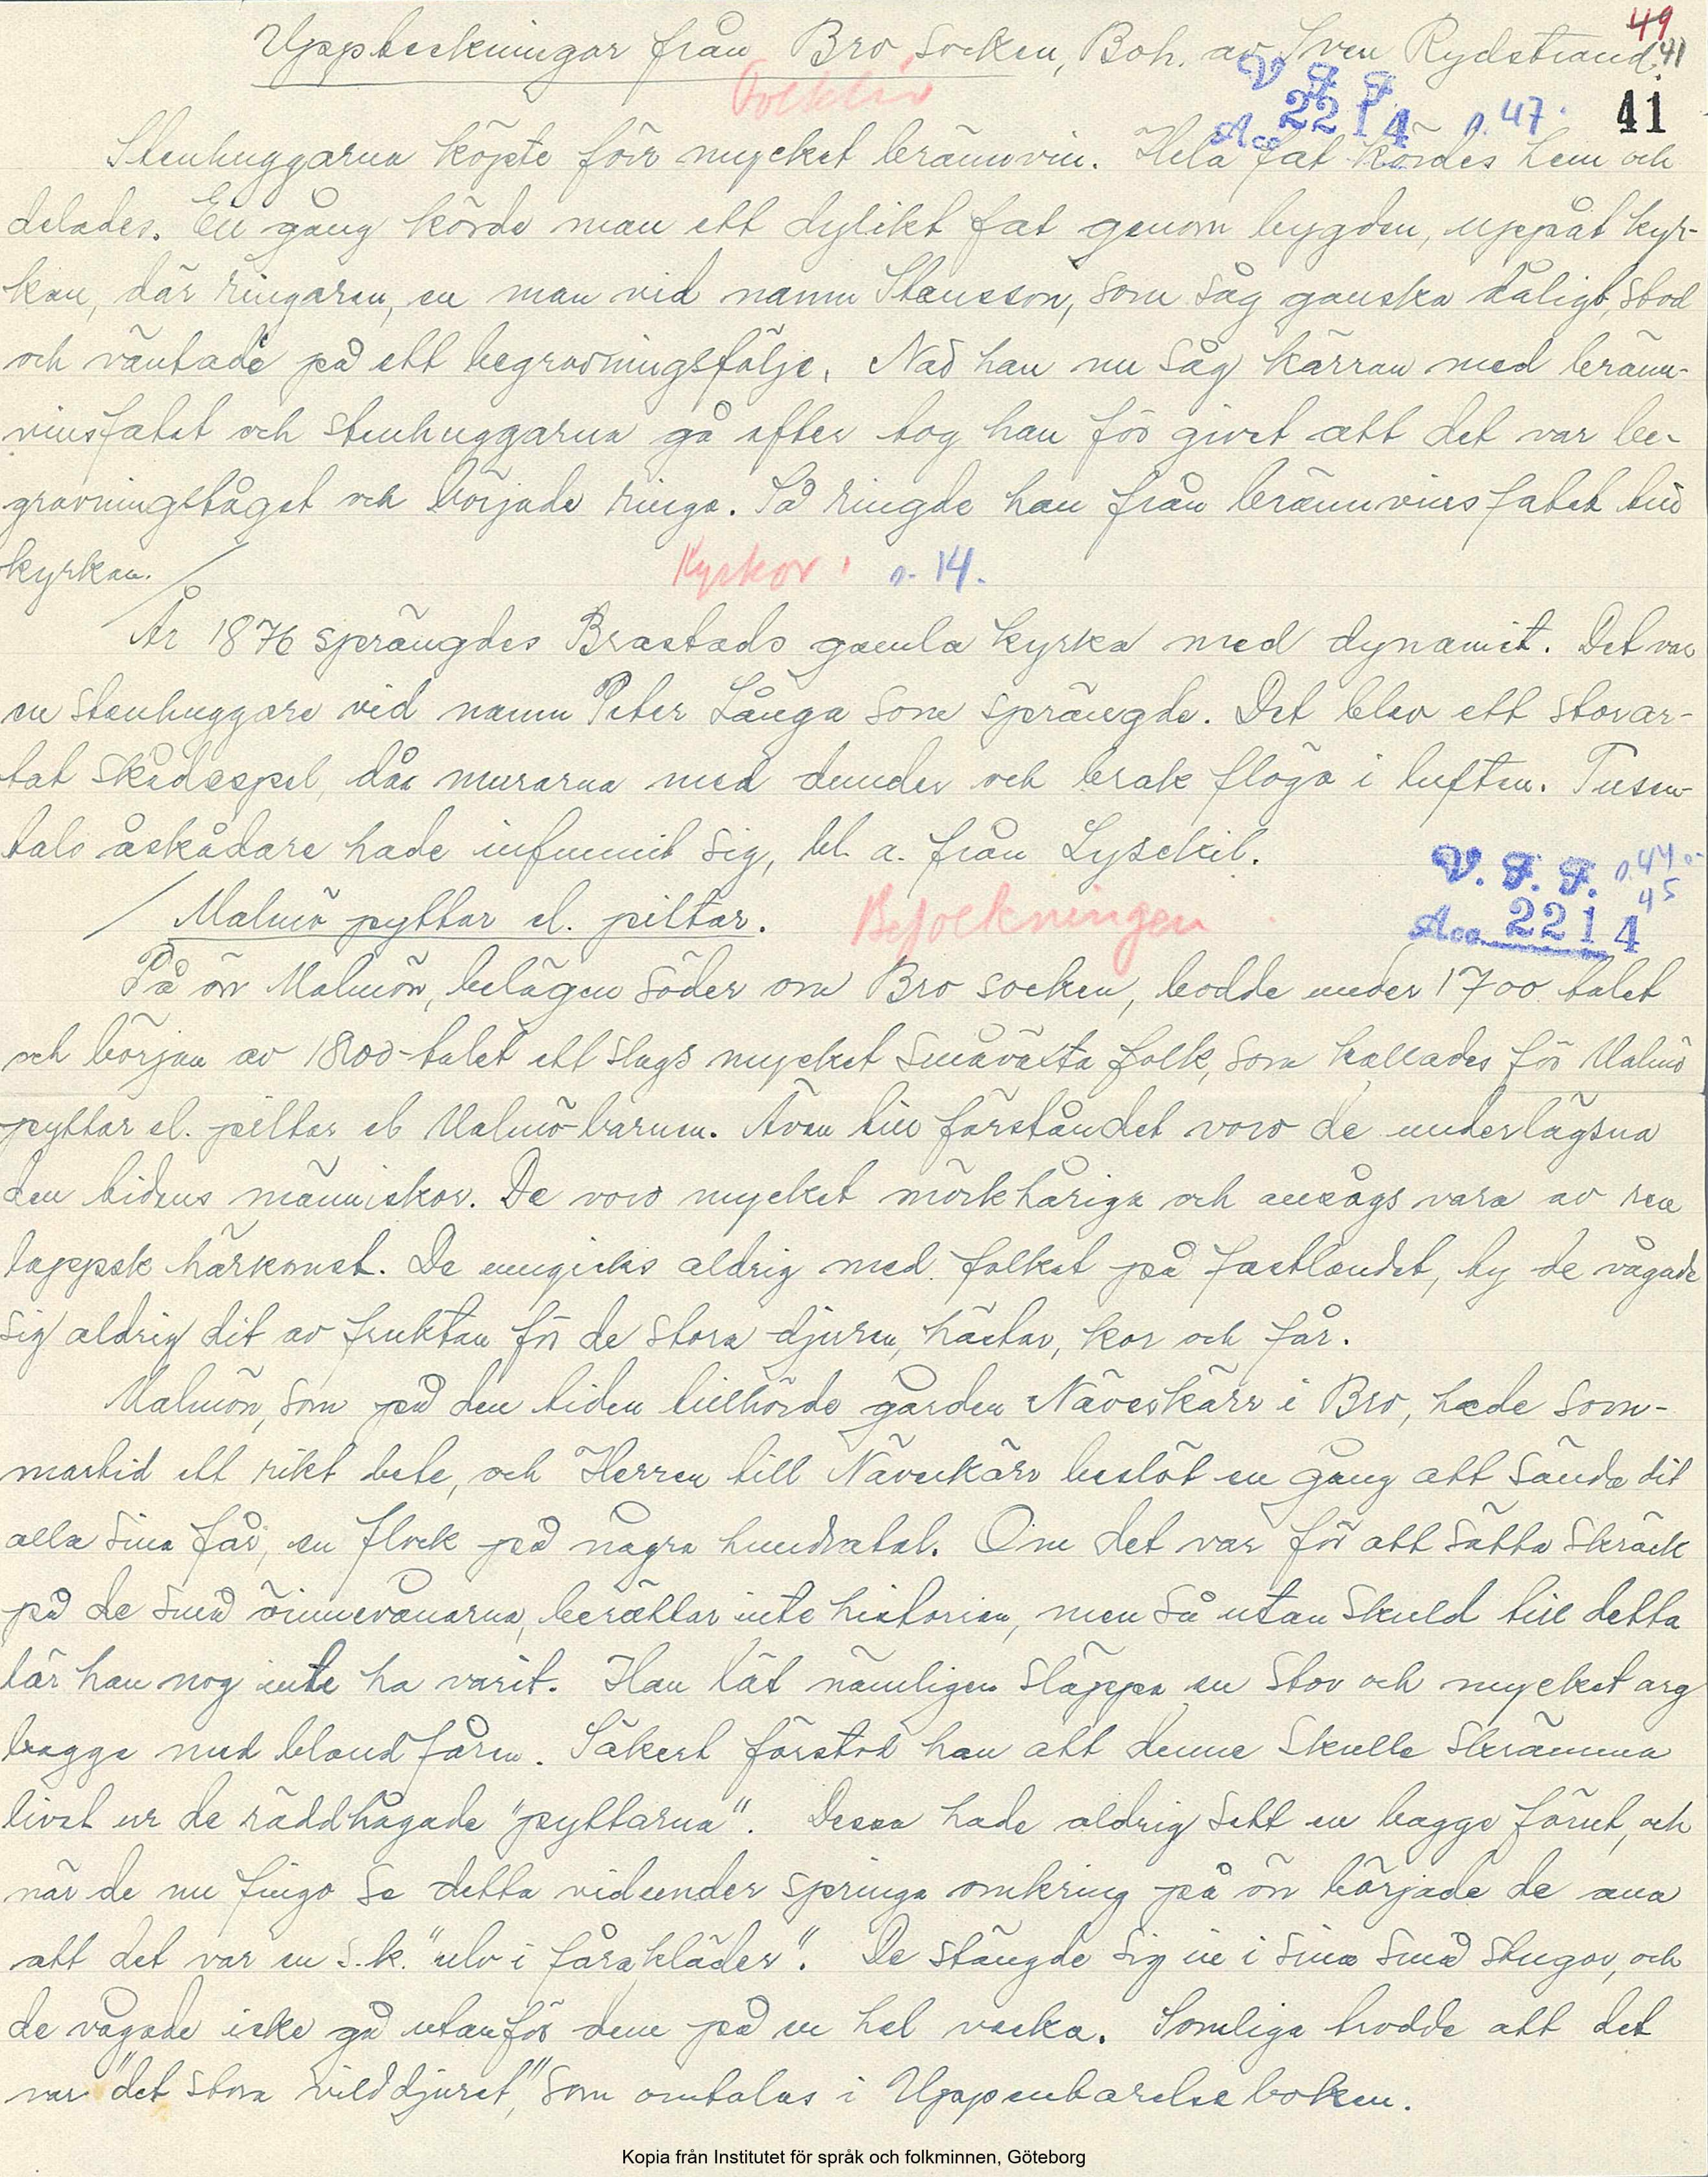 49
Uppteckningar från Bro socken, Boh. av Sven Rydstrand.
41
Folkliv
V. F. F.
Acc 2214 s. 47.
41
Stenhuggarna köpte förr mycket brännvin. Hela fat kördes hem och
delades. En gång körde man ett dylikt fat genom bygden, uppåt kyr-
kan, där ringaren, en man vid namn Stensson, som såg ganska dåligt, stod
och väntade på ett begravningsfölje. När han nu såg kärran med bränn-
vinsfatet och stenhuggarna gå efter tog han för givet att det var be-
gravningståget och började ringa. Så ringde han från brännvinsfatet till
kyrkan.
Kyrkor s. 14.
År 1876 sprängdes Brastads gamla kyrka med dynamit. Det var
en stenhuggare vid namn Peter Långa som sprängde. Det blev ett storar-
tat skådespel, då murarna med dunder och brak flögo i luften. Tusen-
tals åskådare hade infunnit sig, bl. a. från Lysekil.
V. F. F. s. 44-
45
Acc 2214
Malmö pyttar el. piltar.
Befolkningen
På ön Malmön, belägen söder om Bro socken, bodde under 1700 talet
och början av 1800-talet ett slags mycket småväxta folk, som kallades för Malmö
pyttar el. piltar el Malmö-barnen. Även till förståndet voro de underlägsna
den tidens människor. De voro mycket mörkhåriga och ansågs vara av ren
lappsk härkomst. De umgicks aldrig med folket på fastlandet, ty de vågade
sig aldrig dit av fruktan för de stora djuren, hästar, kor och får.
Malmön, som på den tiden tillhörde gården Näveskärr i Bro, hade som-
martid ett rikt bete, och Herren till Näveskärr beslöt en gång att sända dit
alla sina får, en flock på några hundratal. Om det var för att sätta skräck
på de små öinnevånarna, berättar inte historien, men så utan skuld till detta
lär han nog inte ha varit. Han lät nämligen släppa en stor och mycket arg
bagge med bland fåren. Säkert förstod han att denne skulle skrämma
livet ur de räddhågade "pyttarna". Dessa hade aldrig sett en bagge förut, och
när de nu fingo se detta vidunder springa omkring på ön började de ana
att det var en s.k. "ulv i fårakläder". De stängde sig in i sina små stugor, och
de vågade icke gå utanför dem på en hel vecka. Somliga trodde att det
var "det stora vilddjuret," som omtalas i Uppenbarelseboken.
Kopia från Institutet för språk och folkminnen, Göteborg